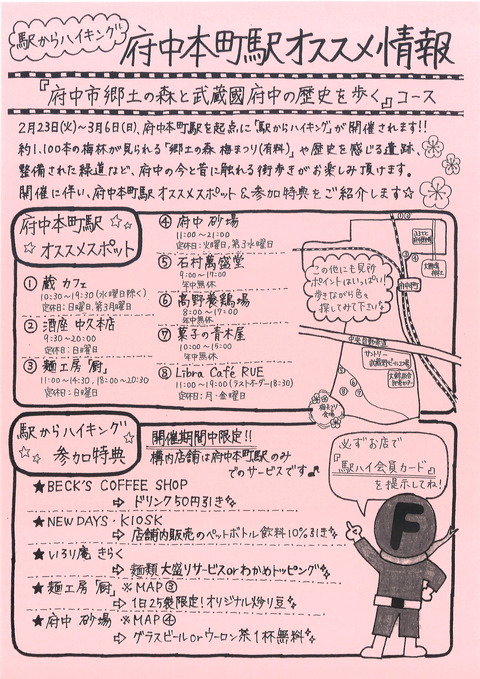 駅からハイキング
府中本町駅オススメ情報
『府中市郷土の森と武蔵國府中の歴史を歩く』コース
2月23日(火)~3月6日(日)、府中本町駅を起点に「駅からハイキング」が開催されます!!
約1,100本の梅林が見られる「郷土の森 梅まつり(有料)」や歴史を感じる遺跡、
整備された緑道など、府中の今と昔に触れる街歩きがお楽しみ頂けます。
開催に伴い、府中本町駅オススメスポット&参加特典をご紹介します☆
府中本町駅
オススメスポット
① 蔵 カフェ
10:30~19:30(水曜日除く)
定休日:日曜日、第3月曜日
② 酒座 中久本店
9:30~20:00
定休日:日曜日
③ 麺工房「厨」
11:00~14:30, 18:00~20:30
定休日:日曜日
④ 府中 砂場
11:00~21:00
定休日:火曜日、第3水曜日
⑤ 石村萬盛堂
9:00~19:00
年中無休
⑥ 高野養鶏場
8:00~17:00
年中無休
⑦ 菓子の青木屋
10:00~15:00
年中無休
⑧ Libra Café RUE
11:00~19:00(ラストオーダー18:30)
定休日:月・金曜日
この他にも見所
ポイントはいっぱい!
歩きながら色々
探してみて下さい♪
大國魂
神社
府中本町
中央自動車道
サントリー
武蔵野ビール工場
梅まつり
会場
駅からハイキング
参加特典
開催期間中限定!!
構内店舗は府中本町駅のみ
でのサービスです♪
★BECK'S COFFEE SHOP
⇨ ドリンク50円引き
★NEWDAYS・KIOSK
⇨ 店舗内販売のペットボトル飲料10%引き
★いろり庵 きらく
⇨ 麺類大盛りサービスorわかめトッピング
★麺工房「厨」 ※MAP③
⇨ 1日25袋限定!オリジナル炒り豆
★府中 砂場 ※MAP④
⇨ グラスビールorウーロン茶1杯無料
必ずお店で
『駅ハイ会員カード』
を提示してね!
F